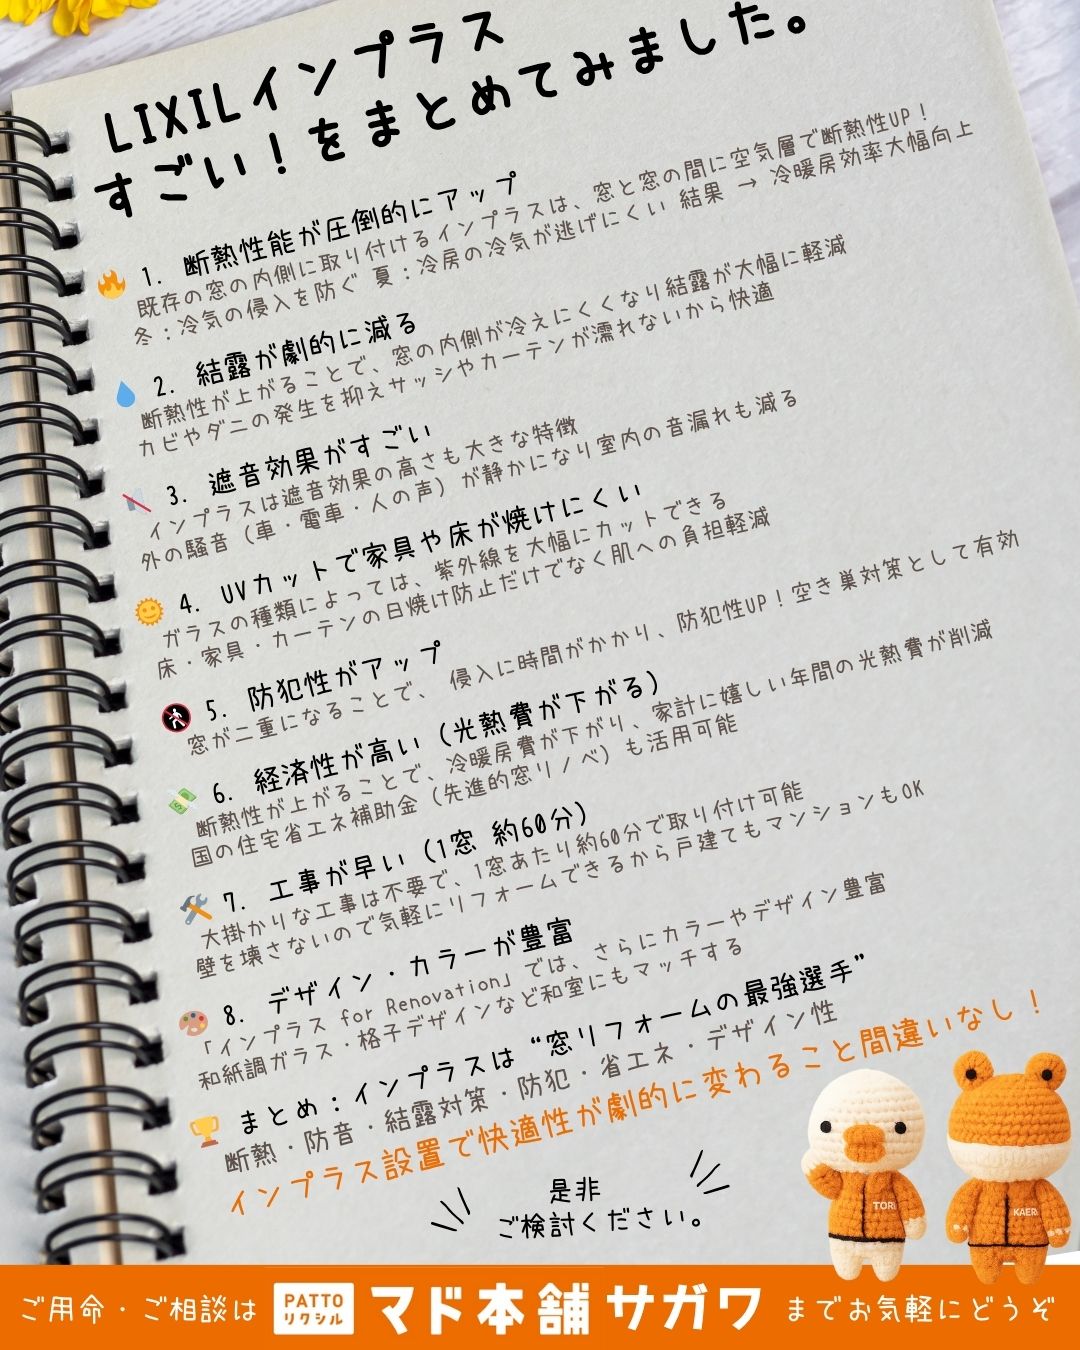 LIXILインプラス
すごい！をまとめてみました。
🔥 1. 断熱性能が圧倒的にアップ
既存の窓の内側に取り付けるインプラスは、窓と窓の間に空気層で断熱性UP！
冬：冷気の侵入を防ぐ 夏：冷房の冷気が逃げにくい 結果 → 冷暖房効率大幅向上
💧 2. 結露が劇的に減る
断熱性が上がることで、窓の内側が冷えにくくなり結露が大幅に軽減
カビやダニの発生を抑えサッシやカーテンが濡れないから快適
3. 遮音効果がすごい
インプラスは遮音効果の高さも大きな特徴
外の騒音（車・電車・人の声）が静かになり室内の音漏れも減る
🌞 4. UVカットで家具や床が焼けにくい
ガラスの種類によっては、紫外線を大幅にカットできる
床・家具・カーテンの日焼け防止だけでなく肌への負担軽減
5. 防犯性がアップ
窓が二重になることで、 侵入に時間がかかり、防犯性UP！空き巣対策として有効
💸 6. 経済性が高い（光熱費が下がる）
断熱性が上がることで、冷暖房費が下がり、家計に嬉しい年間の光熱費が削減
国の住宅省エネ補助金（先進的窓リノベ）も活用可能
🛠 7. 工事が早い（1窓 約60分）
大掛かりな工事は不要で、1窓あたり約60分で取り付け可能
壁を壊さないので気軽にリフォームできるから戸建てもマンションもOK
🎨 8. デザイン・カラーが豊富
「インプラス for Renovation」では、さらにカラーやデザイン豊富
和紙調ガラス・格子デザインなど和室にもマッチする
🏆 まとめ：インプラスは “窓リフォームの最強選手”
断熱・防音・結露対策・防犯・省エネ・デザイン性
インプラス設置で快適性が劇的に変わること間違いなし！
是非
ご検討ください。
TORI
KAERU
ご用命・ご相談は PATTO リクシル マド本舗 サガワ までお気軽にどうぞ